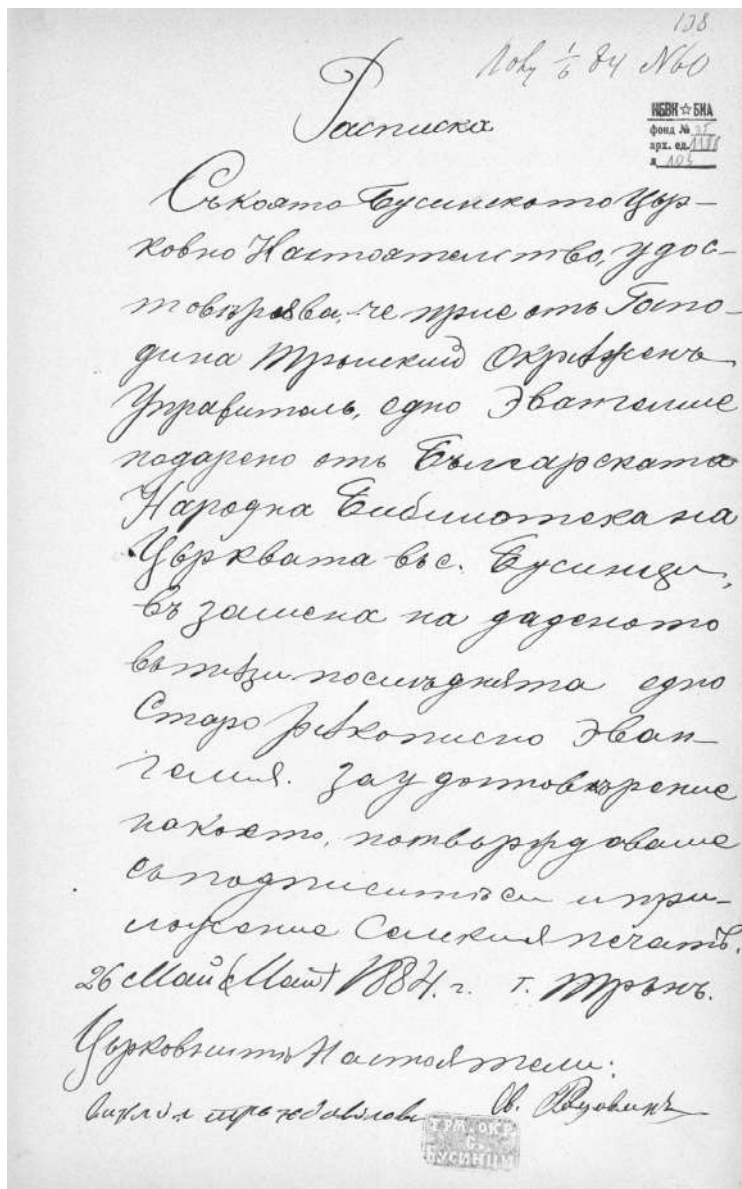 138
1/6 84 №60
Расписка
НБКМ☆БИА
фонд № 35
арх. ед. 1188
л 103
Съкоято Бусинското Цър-
ковно Настоятелство, удос-
товѣрява, че прие отъ Госпо-
дина Трънский Окрѫженъ
Управитель, едно Эвангелие
подарено отъ Българската
Народна Библиотека на
Църквата въ с. Бусинци,
въ замена на даденото
послѣднята едно
Старо рѫкописно Эван-
гелия. За удостовѣрение
на което, потвърждаваме
съ подписитѣ си и при-
ложение Селския печатъ.
26 Май (Май) 1884. г. г. Трънъ.
Църковнитѣ Настоятели:
Св.
ТРН. ОКР.
С.
БУСИНЦЫ